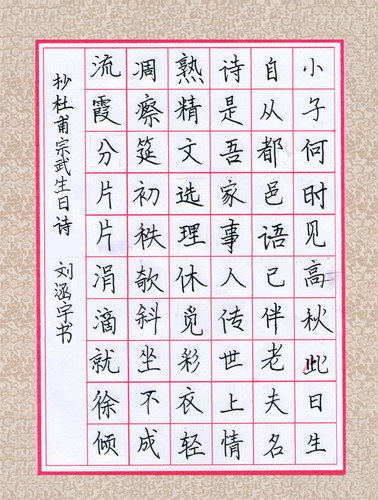 小子何时见高秋此日生
自从都邑语已伴老夫名
诗是吾家事人传世上情
熟精文选理休觅彩衣轻
凋瘵筵初秩欹斜坐不成
流霞分片片涓滴就徐倾
抄杜甫宗武生日诗 刘涵宇书